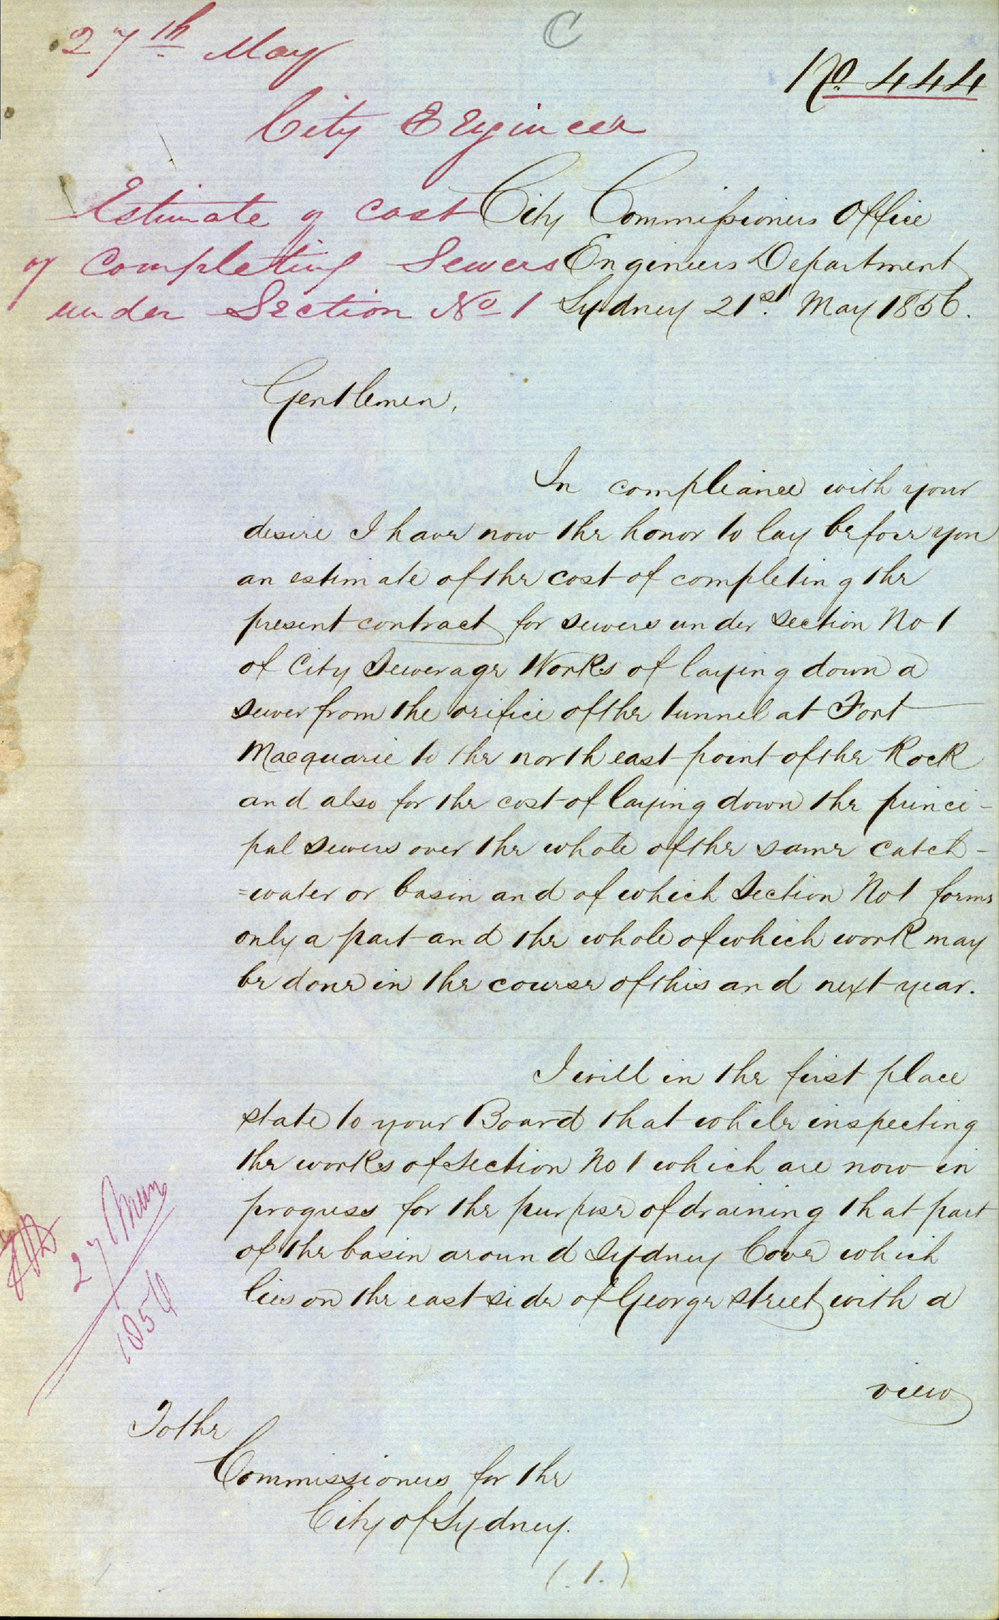 27th May
C
No. 444
City Engineer
Estimate of cost
of Completing Sewers
under Section No 1
City Commissioners Office
Engineers Department
Sydney 21st. May 1856.
Gentlemen,
In compliance with your
desire I have now the honor to lay before you
an estimate of the cost of completing the
present contract for sewers under section No 1
of City Sewerage Works of laying down a
sewer from the orifice of the tunnel at Fort
Macquarie to the north east point of the Rock
and also for the cost of laying down the princi-
pal sewers over the whole of the same catch-
=water or basin and of which Section No 1 forms
only a part and the whole of which work may
be done in the course of this and next year.
I will in the first place
state to your Board that while inspecting
the works of section No 1 which are now in
progress for the purpose of draining that part
of the basin around Sydney Cove which
lies on the east side of George street with a
view
27
1856
To the
Commissioners for the
City of Sydney.
(.1.)